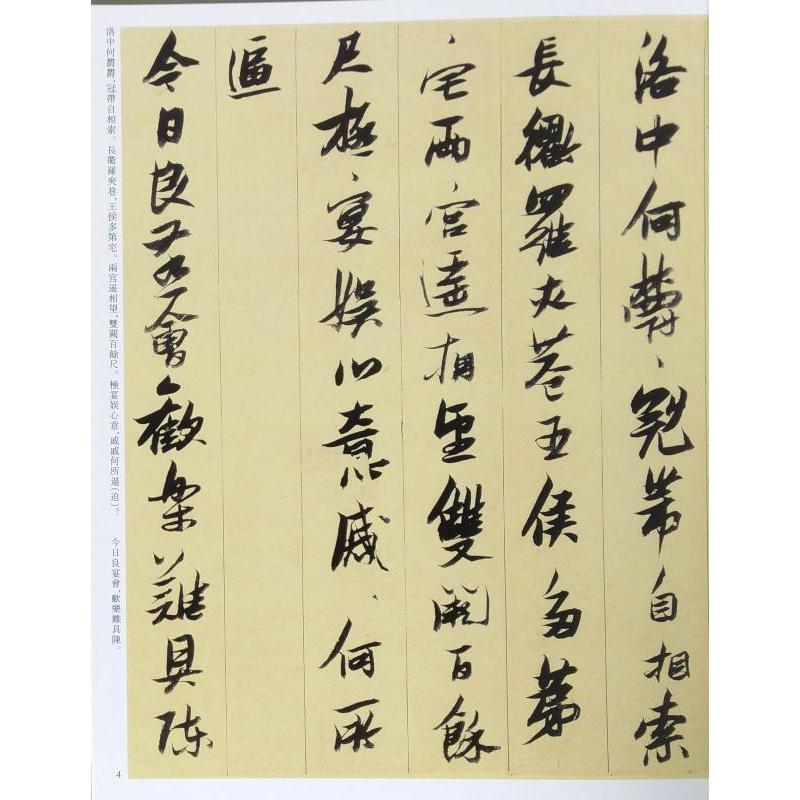 洛中何欝〻冠帶自相索
長衢羅夾巷王侯多第
宅兩宮遙相望雙闕百餘
尺極宴娛心意戚〻何所
逼
今日良宴會歡樂難具陳
洛中何欝欝，冠帶自相索。長衢羅夾巷，王侯多第宅。兩宫遥相望，雙闕百餘尺。極宴娱心意，戚戚何所逼（迫）？　今日良宴會，歡樂難具陳。
4